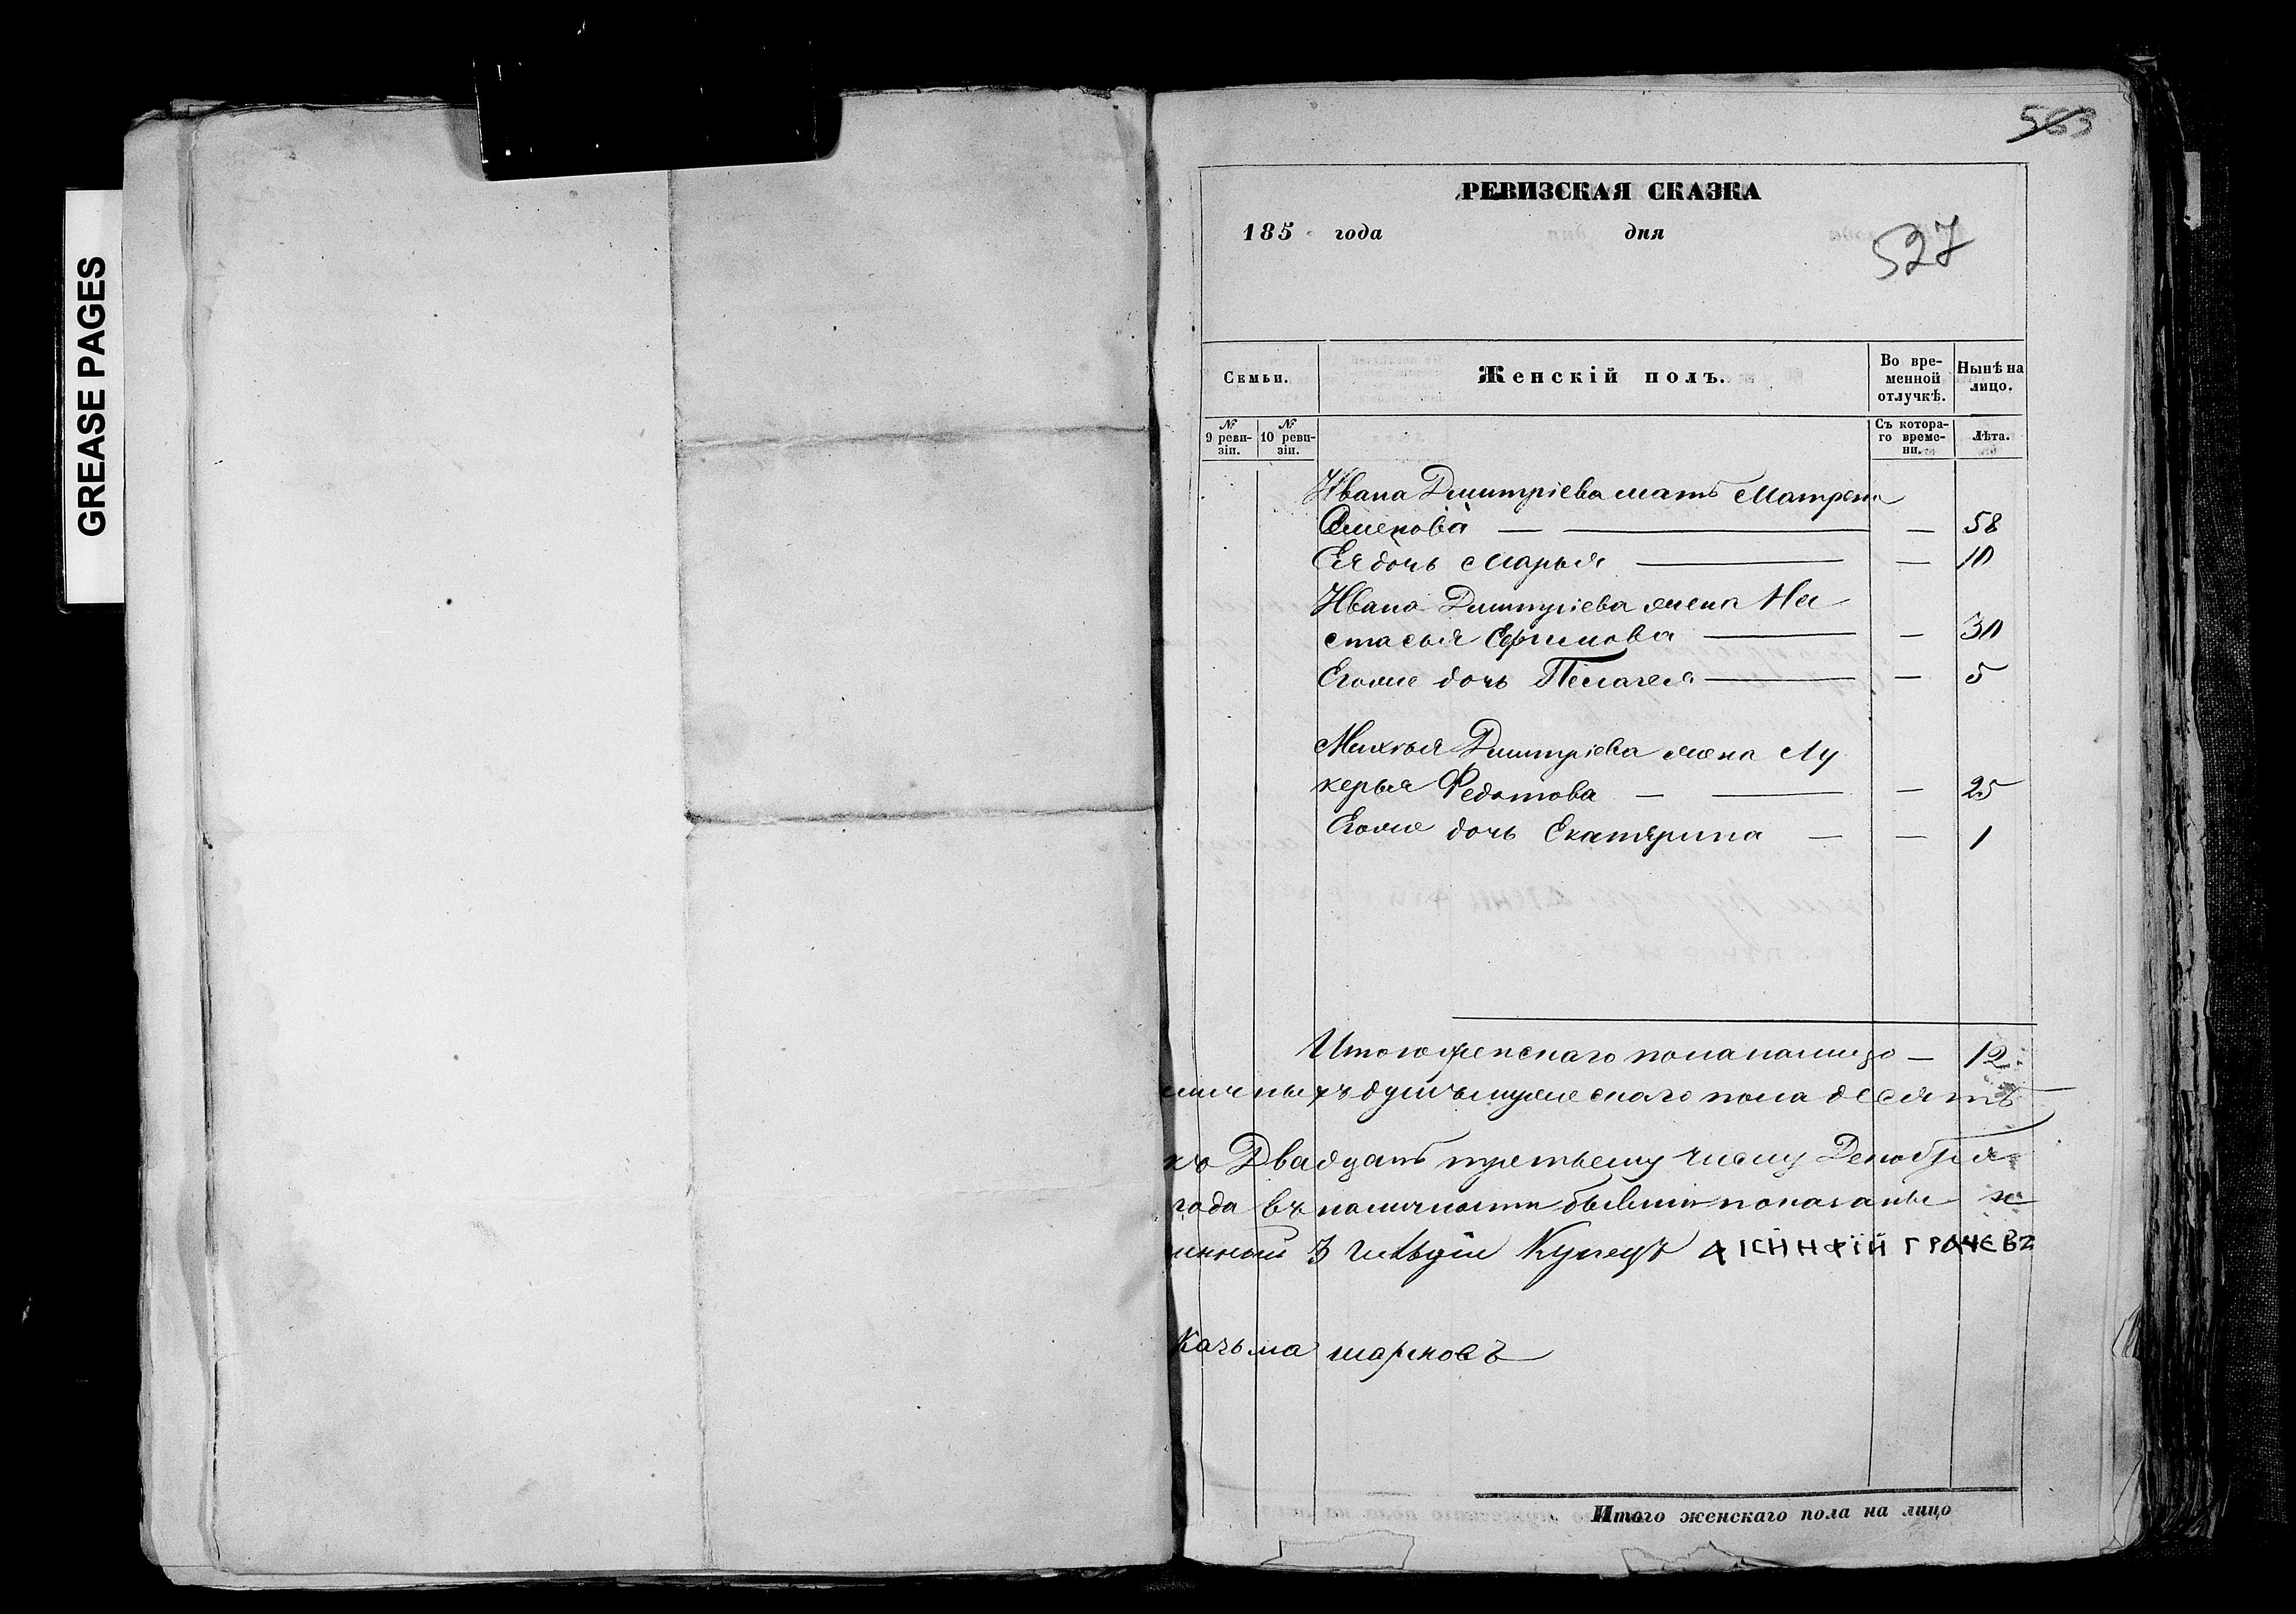 GREASE PAGES
563
РЕВИЗСКАЯ СКАЗКА
185 года дня
527
Семьи.
Женскій полъ.
Во вре-
менной
отлучкѣ.
Нынѣ на
лицо.
№
9 реви-
зіи.
№
10 реви-
зіи.
Съ котора-
го време-
ни.
Лѣта.
Ивана Дмитріева мать Матрена
Семенова — — — 58
Ея дочь Марья — — 10
Ивана Дмитріева жена На
стасья Ефимова — — 30
Егоже дочь Пелагея — — 5
Михѣя Дмитріева жена Лу
керья Федотова — — — 25
Егоже дочь Екатярина — — 1
Итого женскаго пола налицо — 12
личныхъ душъ мужескаго пола десять
ко Двадцать третьему числу Декабря
года въ наличности бывши показаны и
3 Гильдіи Купецъ ГРАЧЕВЪ
Казьма шарковъ
Итого женскаго пола на лицо